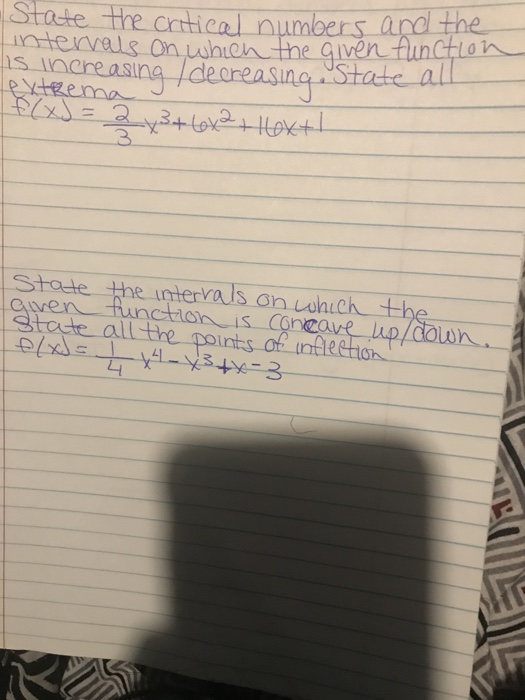 State the critical numbers and the
intervals on which the given function
is increasing /decreasing. State all
extrema
f(x) = 2/3 x³+6x²+16x+1
State the intervals on which the
given function is concave up/down.
State all the points of inflection
f(x) = 1/4 x⁴-x³+x-3